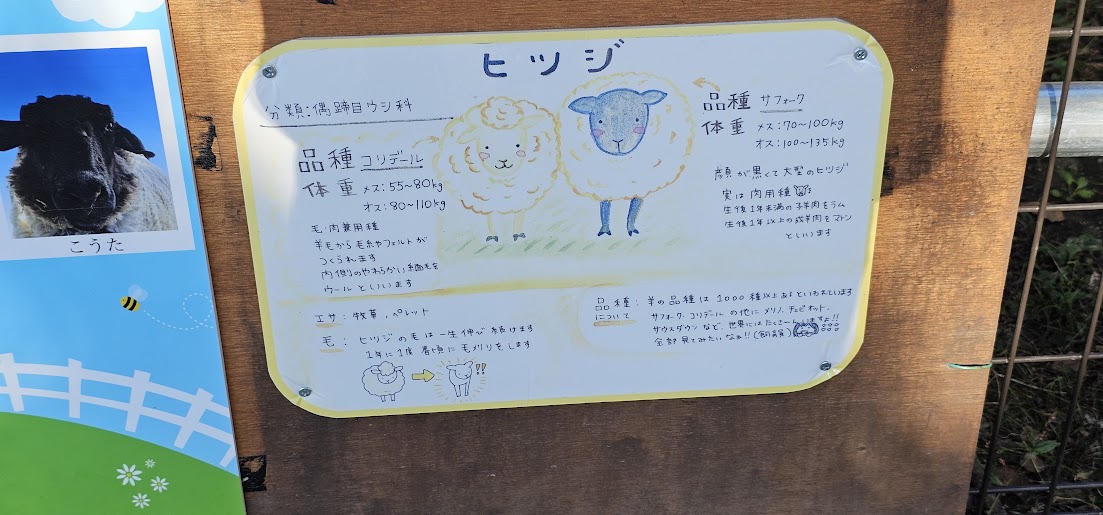 こうた
ヒツジ
分類:偶蹄目ウシ科
品種 コリデール
体重 メス:55~80kg
オス:80~110kg
毛・肉兼用種
羊毛から毛糸やフェルトが
つくられます
内側のやわらかい綿毛を
ウールといいます
品種 サフォーク
体重 メス:70~100kg
オス:100~135kg
顔が黒くて大型のヒツジ
実は肉用種
生後1年未満の子羊肉をラム
生後1年以上の成羊肉をマトン
といいます
エサ:牧草、ペレット
毛:ヒツジの毛は一生伸び続けます
1年に1度春頃に毛刈りをします
!!
品種について:羊の品種は1000種以上あるといわれています
サフォーク、コリデールの他にメリノ、チェビオット、
サウスダウンなど、世界にはたくさーんいますよ!!
全部見てみたいなぁ!!(飼談)